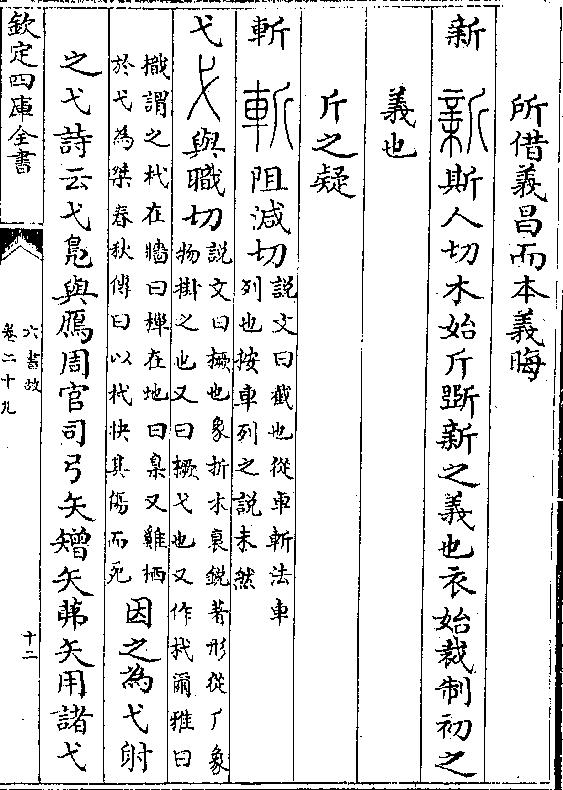 所借義昌而本義晦
新 新 斯人切木始斤斲新之義也衣始裁制初之
義也
斤之疑
斬 斬 阻減切說文曰截也從車斬法車
列也按車列之說未然
弋 弋 與職切說文曰橛也象折木衺銳著形從𠂆象
物掛之也又曰橛弋也又作杙爾雅曰
樴謂之杙在牆曰楎在地曰臬又雞栖
於弋為榤春秋傳曰以杙抉其傷而死 因之為弋射
之弋詩云弋鳧與鴈周官司弓矢矰矢茀矢用諸弋
欽定四庫全書
六書故
卷二十九
十二